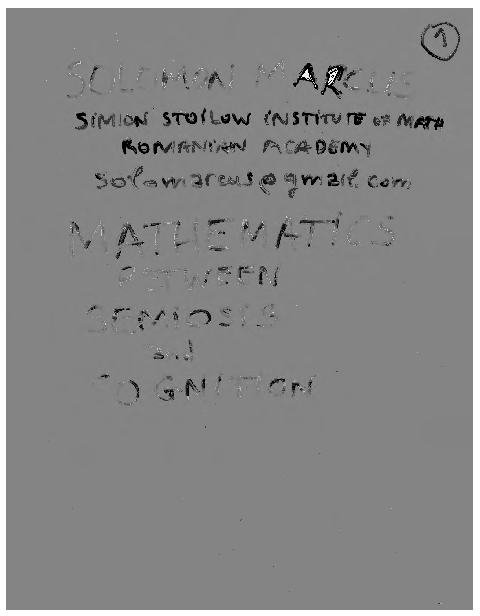 1
SOLOMON MARCUS
SIMION STOILOW INSTITUTE OF MATH
ROMANIAN ACADEMY
solomarcus@gmail.com
MATHEMATICS
BETWEEN
SEMIOSIS
and
COGNITION